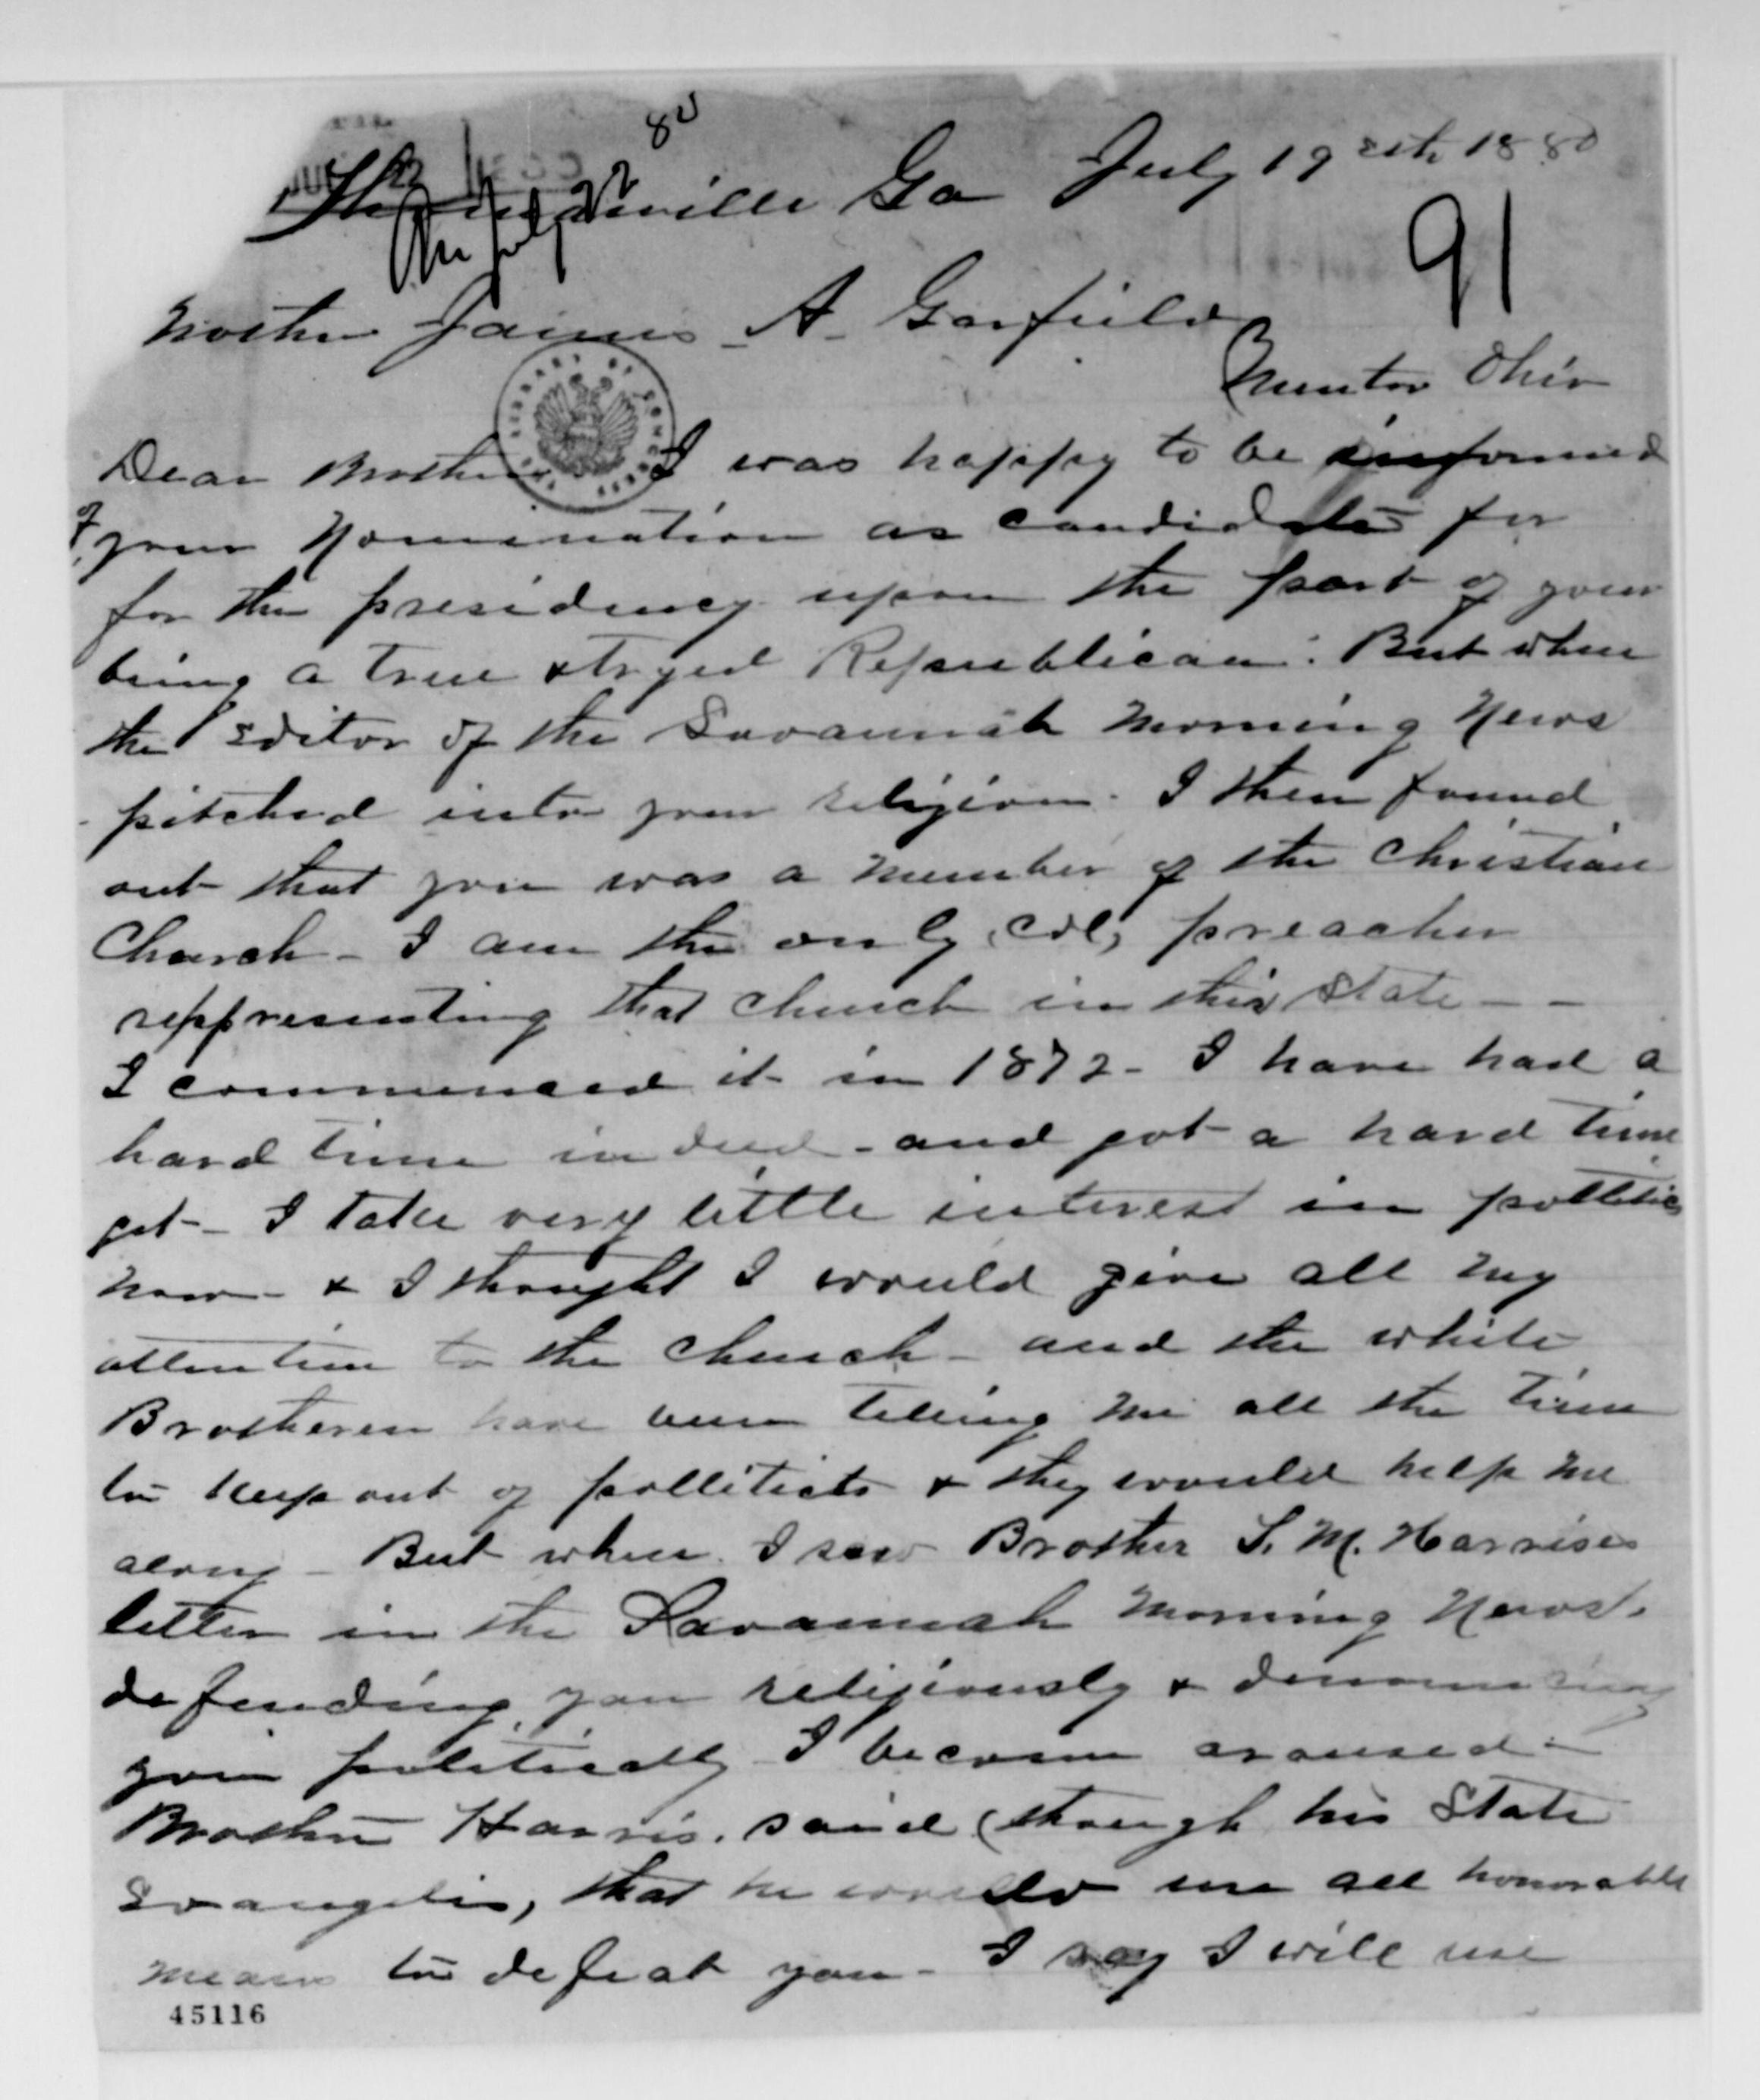 80
Thomasville Ga July 19 1880
Ans July 22
91
Brother James A. Garfield
Mentor Ohio
Dear Brother I was happy to be informed
of your Nomination as candidate for
for the presidency upon the part of your
being a true stryed Republican. But when
the Editor of the Savannah Morning News
pitched into your religion. I then found
out that you was a member of the Christian
Church - I am the only col, preacher
reppresenting that church in this State - -
I commenced it in 1872 - I have had a
hard time indeed - and got a hard time
yet - I take very little interest in pollitics
now - & I thought I would give all my
attention to the church - and the white
Brotheren have been telling me all the time
to keep out of politicts & they would help me
along - But when I saw Brother S. M. Harrises
letter in the Savannah Morning News.
defending you religiously & denouncing
you politically I become aroused -
Brother Harris. said (though his State
Evangelis, that he would use all honorable
means to defeat you - I say I will use
45116